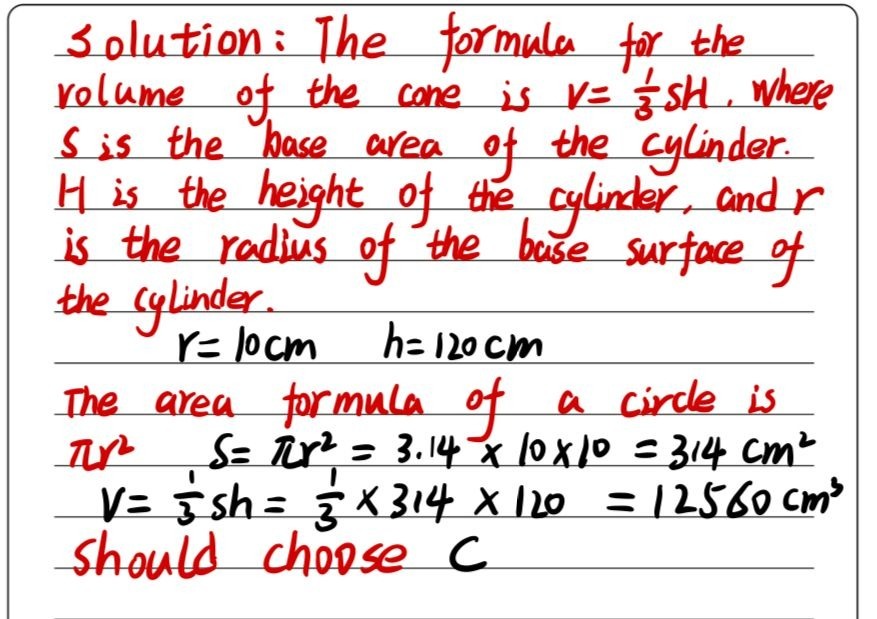 Solution: The formula for the
volume of the cone is V= 1/3 SH, where
S is the base area of the cylinder.
H is the height of the cylinder, and r
is the radius of the base surface of
the cylinder.
r= 10cm h= 120cm
The area formula of a circle is
πr² S= πr² = 3.14 × 10×10 = 314 cm²
V= 1/3 sh = 1/3 × 314 × 120 = 12560 cm³
should choose C